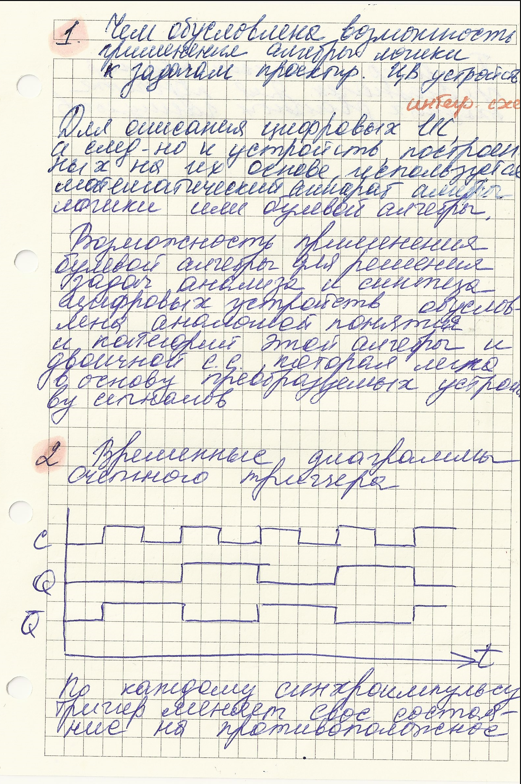 1. Чем обусловлена возможность
применения алгебры логики
к задачам проектир. ЦВ устройств
интегр схе
Для описания цифровых ИС,
а след-но и устройств, построен
ных на их основе используется
математический аппарат алгебры
логики или булевой алгебры.
Возможность применения
булевой алгебры для решения
задач анализа и синтеза
цифровых устройств обуслов-
лена аналогией понятия
и категорий этой алгебры и
двоичной с.с. которая легла
в основу преобразуемых устрой
ву сигналов
2 Временные диаграммы
счетного триггера
C
Q
Q̅
t
По каждому синхроимпульсу
тригер меняет свое состоя-
ние на противоположное